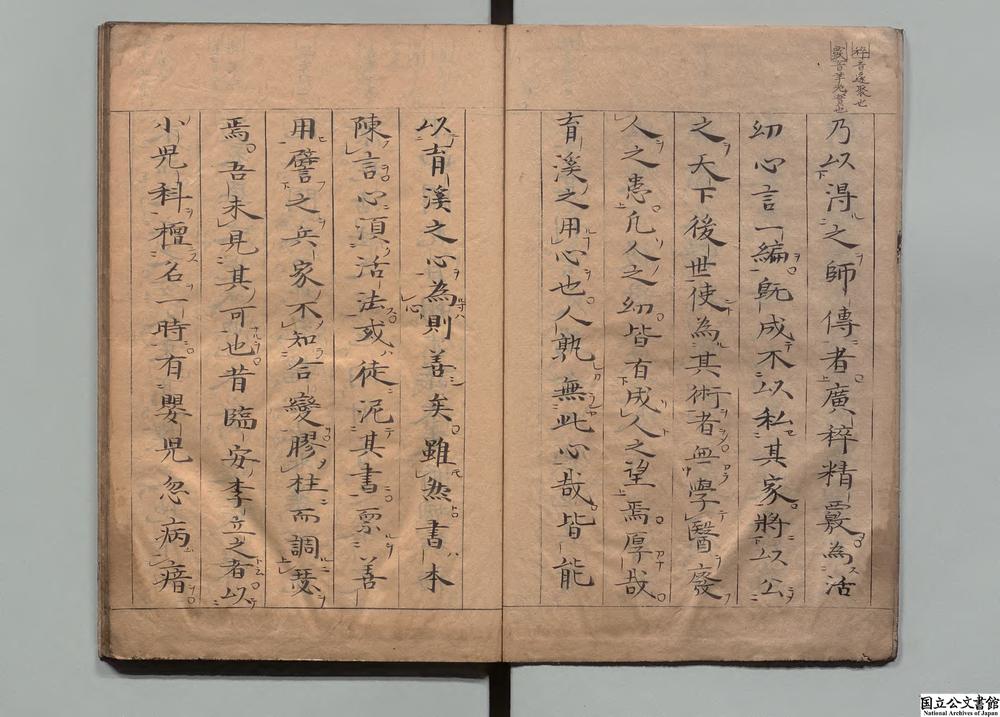 稡音遂聚也
乃以得之師傳者廣稡精覈為活
幼心言一編既成不以私其家將以公
之天下後世使為其術者無學醫廢
人之患凡人之幼皆有成人之望焉厚哉
育溪之用心也人孰無此心哉皆能
以育溪之心為則善矣雖然書本
陳言心須活法或徒泥其書而不善
用譬之兵家不知合變膠柱而調瑟
焉吾未見其可也昔臨安李立之者以
小児科擅名一時有嬰児忽病瘖
国立公文書館
National Archives of Japan